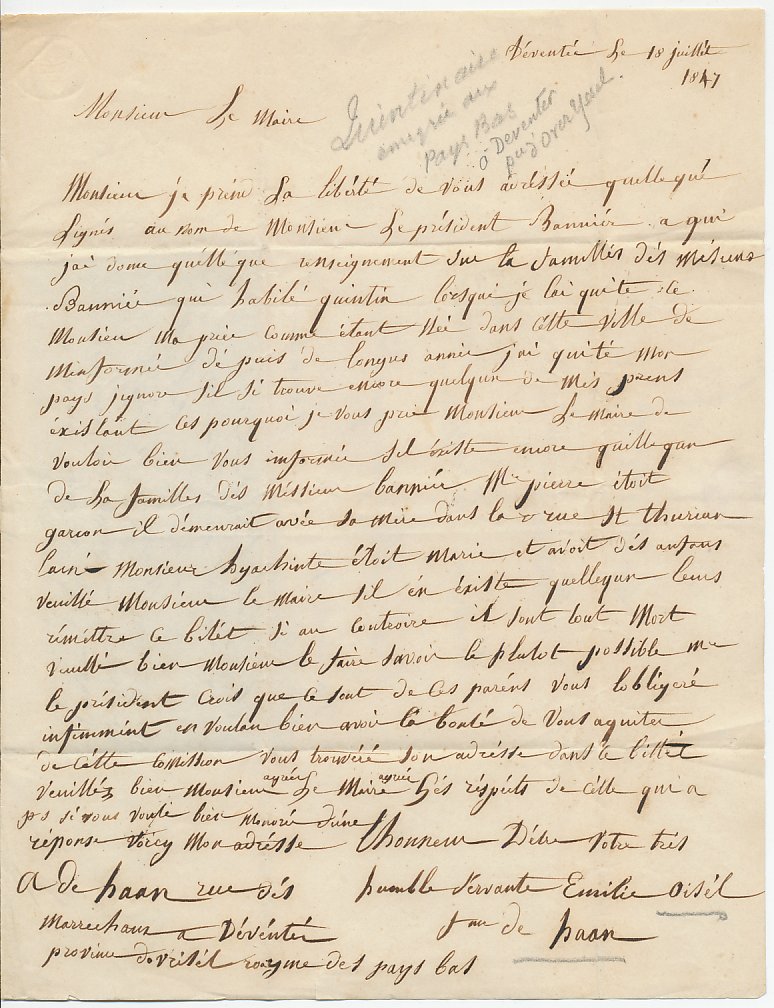 Déventée Le 18 juillét
1847
Monsieur Le Maire
Quintinaise
émigrée aux
Pays Bas
à Deventer
pce d'Over Yssel.
Monsieur je prénd La libérté de Vous adréssée quelleque
Lignés au nom de Monsieur Le président Banniér a qui
j'ai donné quélléque renseignement sur la famillés dés Mésieurs
Banniée qui habité quintin lorsque je l'ai quitée ce
Monsieur Ma priée comme étant Née dans cétte Ville de
M'informée dé puis de longus année j'ai quité Mon
pays j'ignore s'il si trouve encore quelqun de Més prens
éxistant Cés pourquoi je Vous prie Monsieur Le Maire de
Vouloir bien Vous informée s'il éxiste encore quéllequn
de La famillés dés Méssieur banniée Mr pierre étoit
garcon il démeurait avée sa Mére dans la rue St thurian
l'ainé Monsieur hyachinte étoit Marie et avoit dés anfans
Veuillé Monsieur le Maire s'il én éxiste quellequn leurs
rémettre Ce bilét si au Controire il sont tout Mort
Veuillé bien Monsieur le faire savoir le plutot possible Mr
le présidént Crois que Ce sont de Ces paréns Vous l'obligeré
infinimént en Voulan bien avoir la bonté de Vous aquiter
de Cétte Commission Vous trouvéré son adrésse dans le billét
Veuilléz bien Monsieur Le Maire agrée Lés réspécts de Célle qui a
ps si vous voulé bien Monoré d'une
réponse Voicy Mon adrésse L'honneur D'étre Votre trés
A de haan rue dés humble Sérvante Emilie Oisél
Marrechaux a Dévéntér fme de haan
province d'ovrisél royme des pays bas